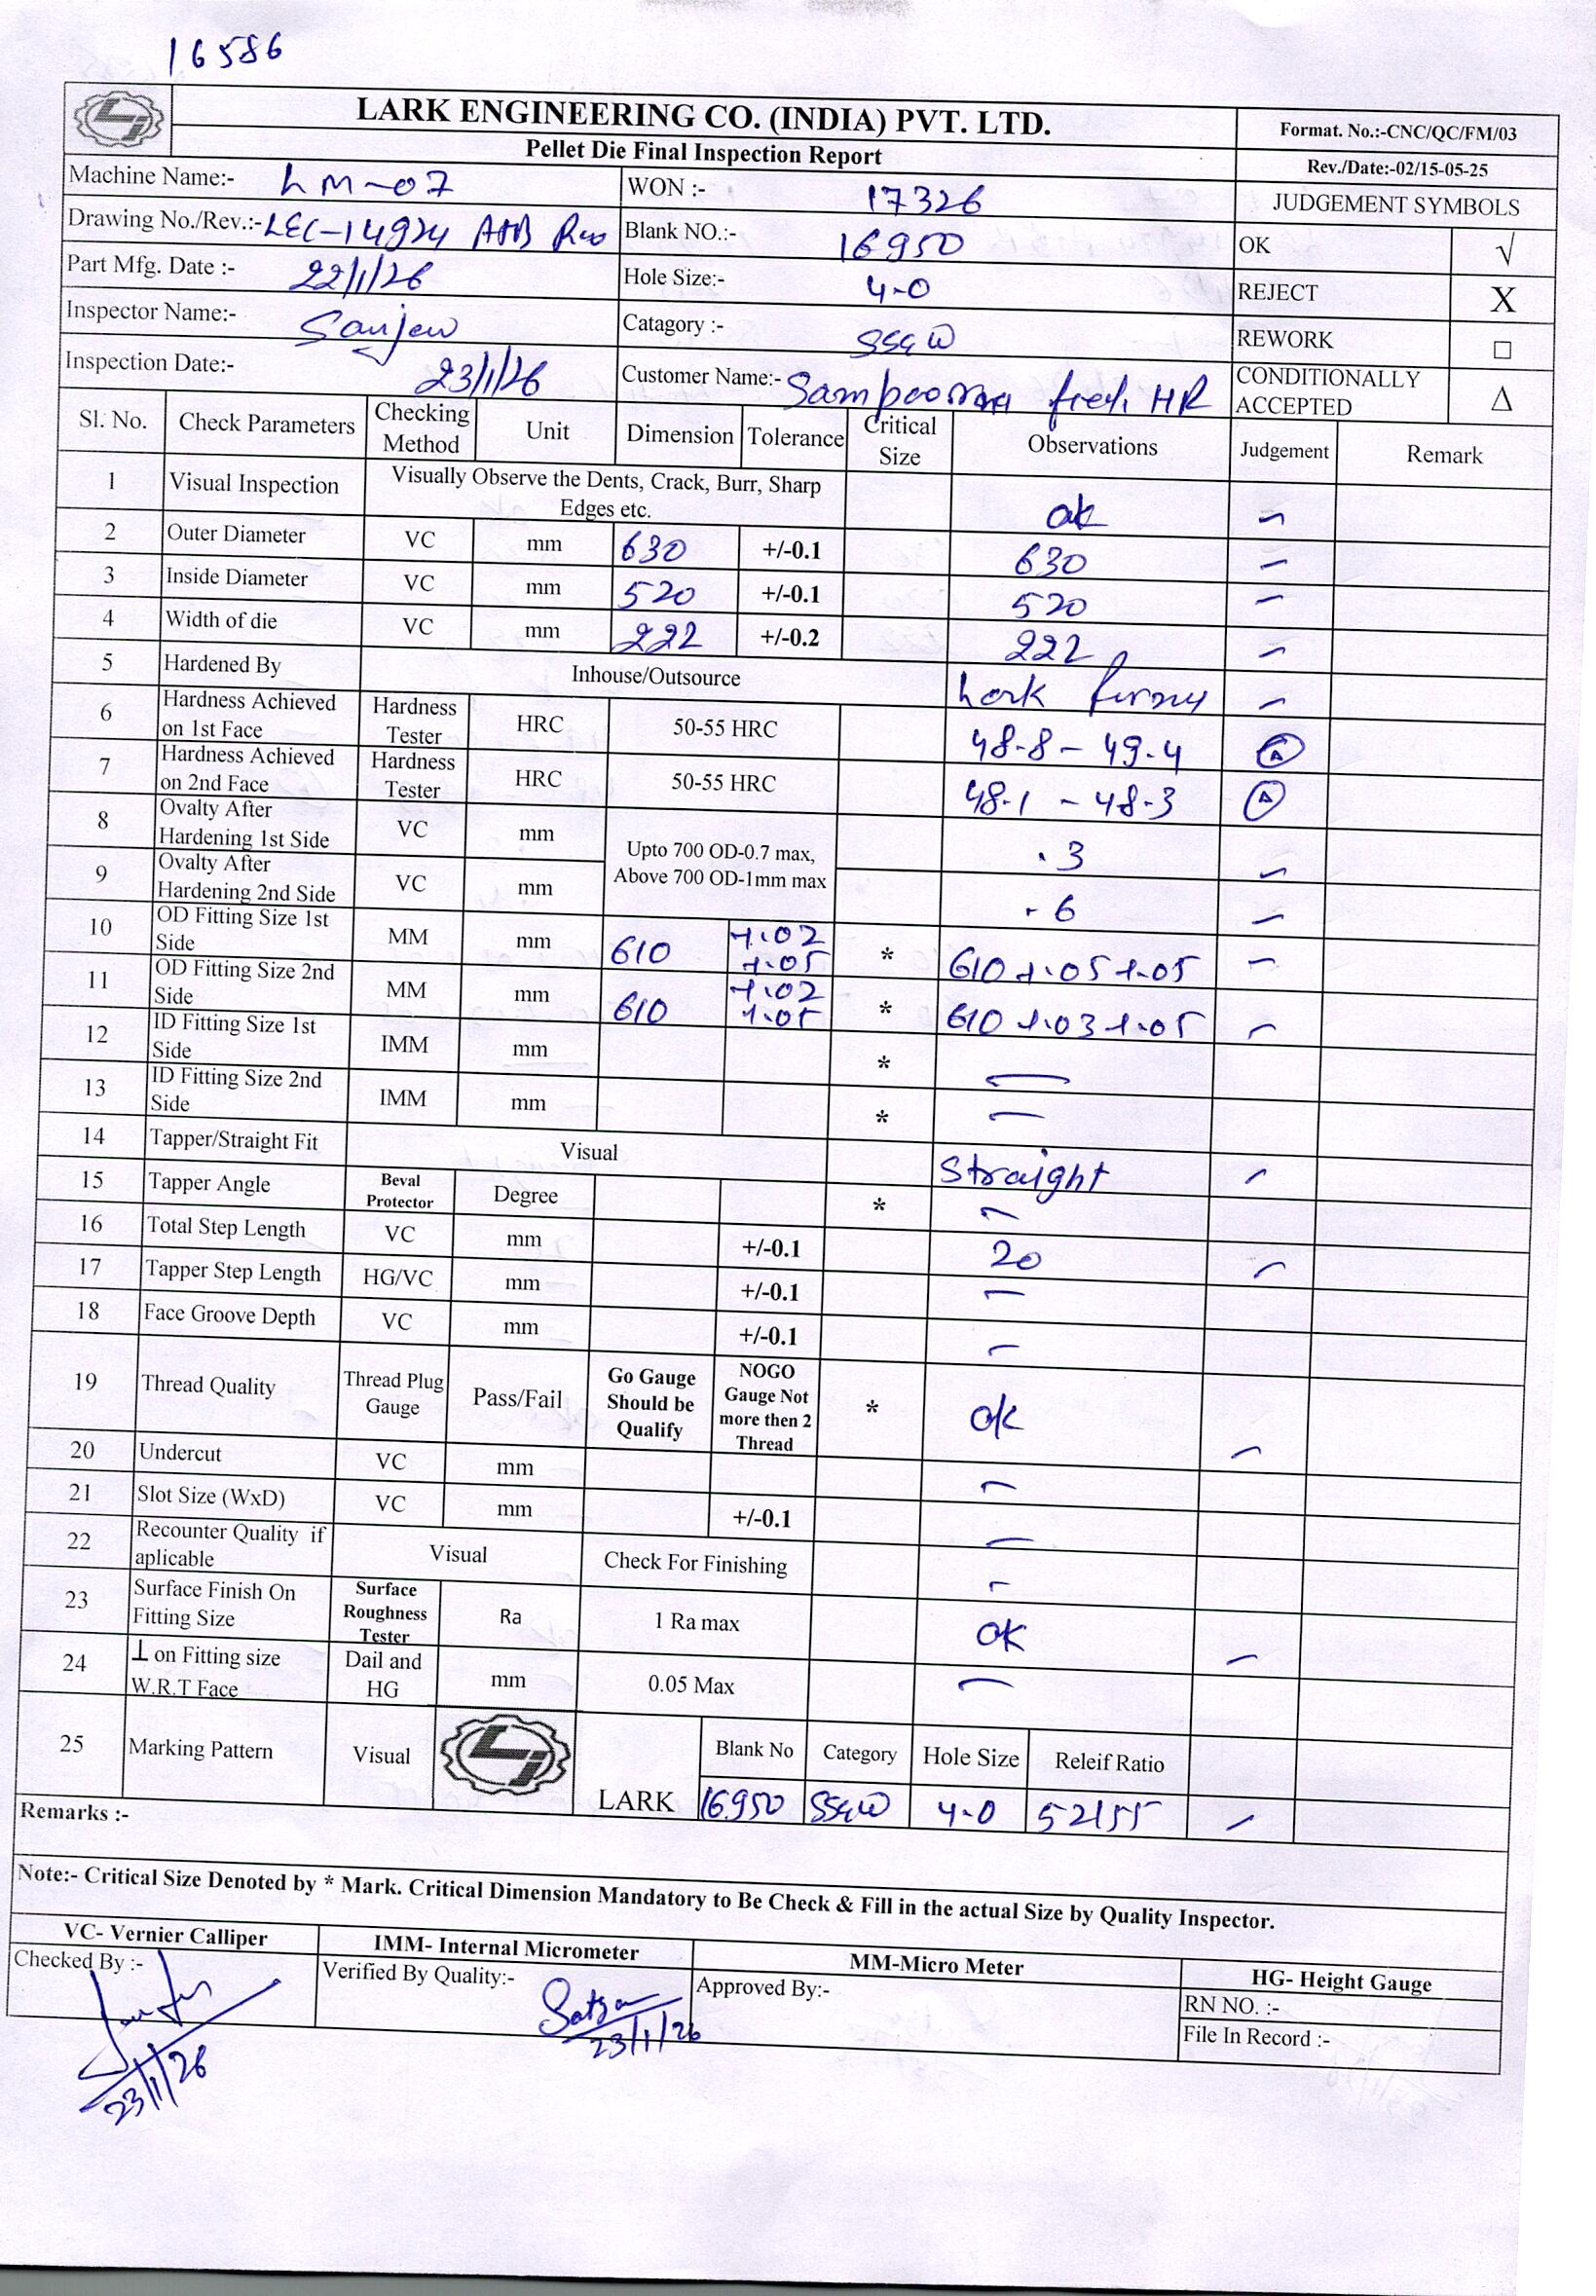 16586
LARK ENGINEERING CO. (INDIA) PVT. LTD.
Format. No.:-CNC/QC/FM/03
Pellet Die Final Inspection Report
Rev./Date:-02/15-05-25
Machine Name:- LM-07 WON :- 17326 JUDGEMENT SYMBOLS
Drawing No./Rev.:- LEC-14924 Blank NO.:- 16950 OK √
Part Mfg. Date :- 22/1/26 Hole Size:- 4.0 REJECT X
Inspector Name:- Sanjew Catagory :- SS4W REWORK □
Inspection Date:- 23/1/26 Customer Name:- Sampoorna HR CONDITIONALLY ACCEPTED Δ
Sl. No. Check Parameters Checking Method Unit Dimension Tolerance Critical Size Observations Judgement Remark
1 Visual Inspection Visually Observe the Dents, Crack, Burr, Sharp Edges etc. ok
2 Outer Diameter VC mm 630 +/-0.1 630
3 Inside Diameter VC mm 520 +/-0.1 520
4 Width of die VC mm 222 +/-0.2 222
5 Hardened By Inhouse/Outsource Lark
6 Hardness Achieved on 1st Face Hardness Tester HRC 50-55 HRC 48.8 - 49.4 Δ
7 Hardness Achieved on 2nd Face Hardness Tester HRC 50-55 HRC 48.1 - 48.3 Δ
8 Ovalty After Hardening 1st Side VC mm Upto 700 OD-0.7 max, Above 700 OD-1mm max .3
9 Ovalty After Hardening 2nd Side VC mm .6
10 OD Fitting Size 1st Side MM mm 610 +.02 +.05 * 610 +.05 +.05
11 OD Fitting Size 2nd Side MM mm 610 +.02 +.05 * 610 +.03 +.05
12 ID Fitting Size 1st Side IMM mm * —
13 ID Fitting Size 2nd Side IMM mm * —
14 Tapper/Straight Fit Visual Straight
15 Tapper Angle Beval Protector Degree * —
16 Total Step Length VC mm +/-0.1 20
17 Tapper Step Length HG/VC mm +/-0.1 —
18 Face Groove Depth VC mm +/-0.1 —
19 Thread Quality Thread Plug Gauge Pass/Fail Go Gauge Should be Qualify NOGO Gauge Not more then 2 Thread * ok
20 Undercut VC mm —
21 Slot Size (WxD) VC mm +/-0.1 —
22 Recounter Quality if aplicable Visual Check For Finishing —
23 Surface Finish On Fitting Size Surface Roughness Tester Ra 1 Ra max OK
24 ⊥ on Fitting size W.R.T Face Dail and HG mm 0.05 Max —
25 Marking Pattern Visual LARK Blank No Category Hole Size Releif Ratio
16950 SS4W 4.0 52/55
Remarks :-
Note:- Critical Size Denoted by * Mark. Critical Dimension Mandatory to Be Check & Fill in the actual Size by Quality Inspector.
VC- Vernier Calliper IMM- Internal Micrometer MM-Micro Meter HG- Height Gauge
Checked By :- Verified By Quality:- Approved By:- RN NO. :-
File In Record :-
23/1/26 23/1/26